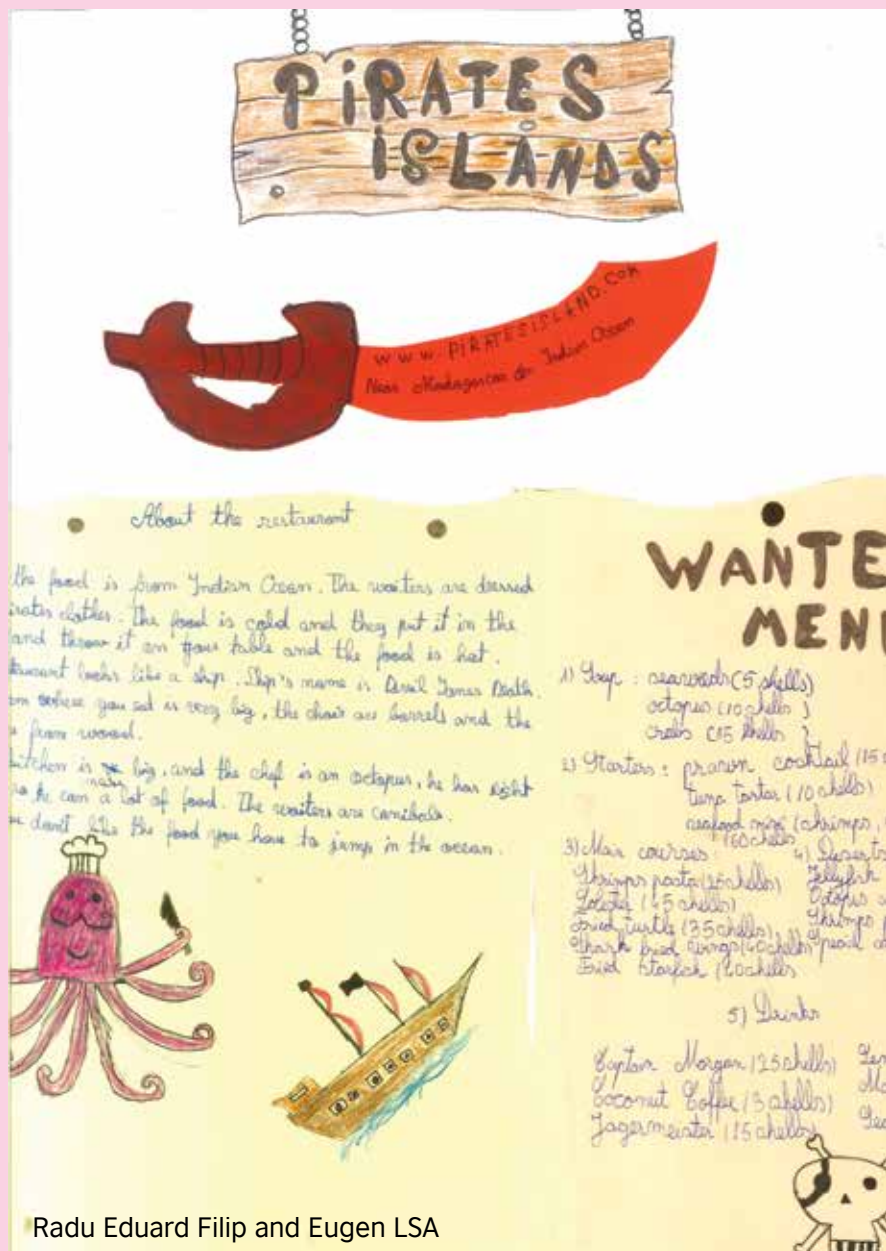 PiRATES
ISLANDS
www.PIRATESISLAND.COM
Near Madagascar & Indian Ocean
About the restaurant
the food is from Indian Ocean. The waiters are dressed
irates clothes. The food is cold and they put it in the
and throw it on your table and the food is hot.
looks like a ship. Ship's name is Death.
where you eat is very big, the chair are barrels and the
from wood.
kitchen is big, and the chef is an octopus, he has eight
so he can a lot of food. The waiters are canibals.
don't like the food you have to jump in the ocean.
WANTE
MEN
1) Soup : seaweeds (5 shells)
octopus (10 shells)
crabs (15 shells)
2) Starters : prawn cocktail (15
tuna tartar (10 shells)
seafood mix (shrimps,
(60 shells
3) Main courses:
Shrimps pasta (25 shells)
(45 shells)
Fried turtle (35 shells)
Shark fried wings (40 shells)
Fried starfish (20 shells
4) Deserts
Jellyfish
Octopus
Shrimps
5) Drinks
Captain Morgan (25 shells)
Coconut Coffee (3 shells)
Jagermeister (15 shells)
Radu Eduard Filip and Eugen LSA